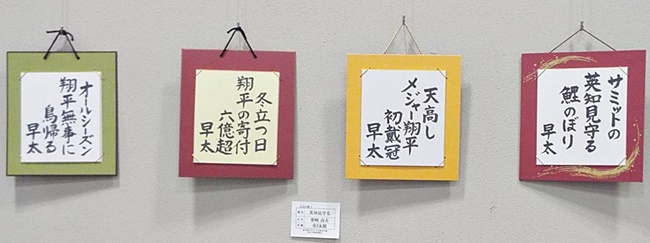 サミットの
英知見守る
鯉のぼり
早太
天高し
メジャー翔平
初戴冠
早太
冬立つ日
翔平の寄付
六億超
早太
オールシーズン
翔平無事に
鳥帰る
早太
英知見守る